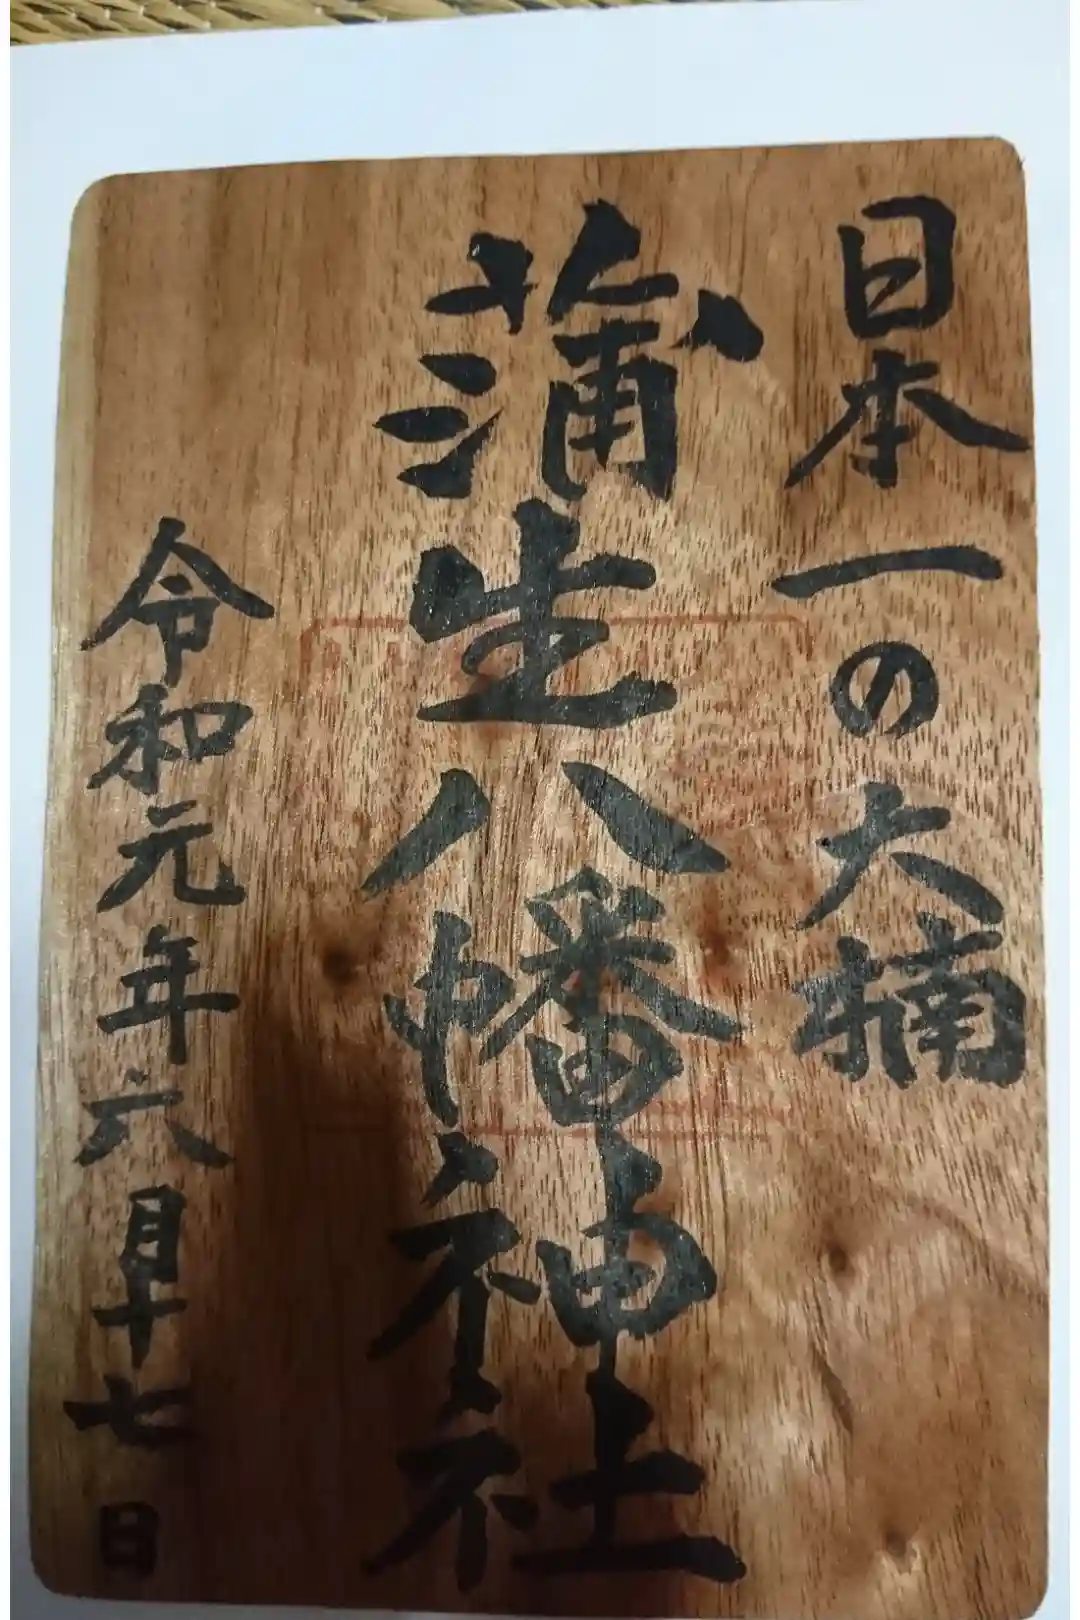 日本一の大楠
蒲生八幡神社
令和元年六月十七日